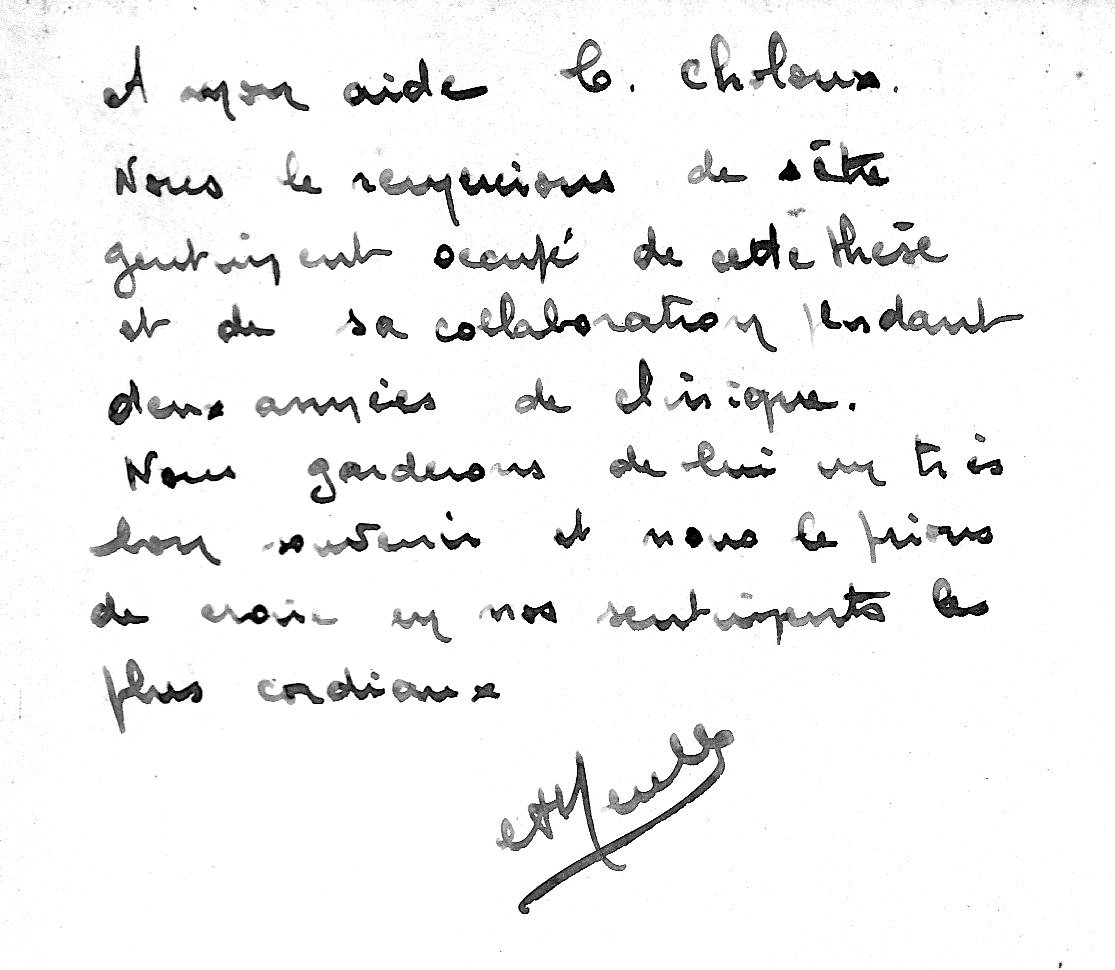 A mon aide C. Choloux.
Nous le remercions de s'être
gentiment occupé de cette thèse
et de sa collaboration pendant
deux années de clinique.
Nous garderons de lui un très
bon souvenir et nous le prions
de croire en nos sentiments les
plus cordiaux